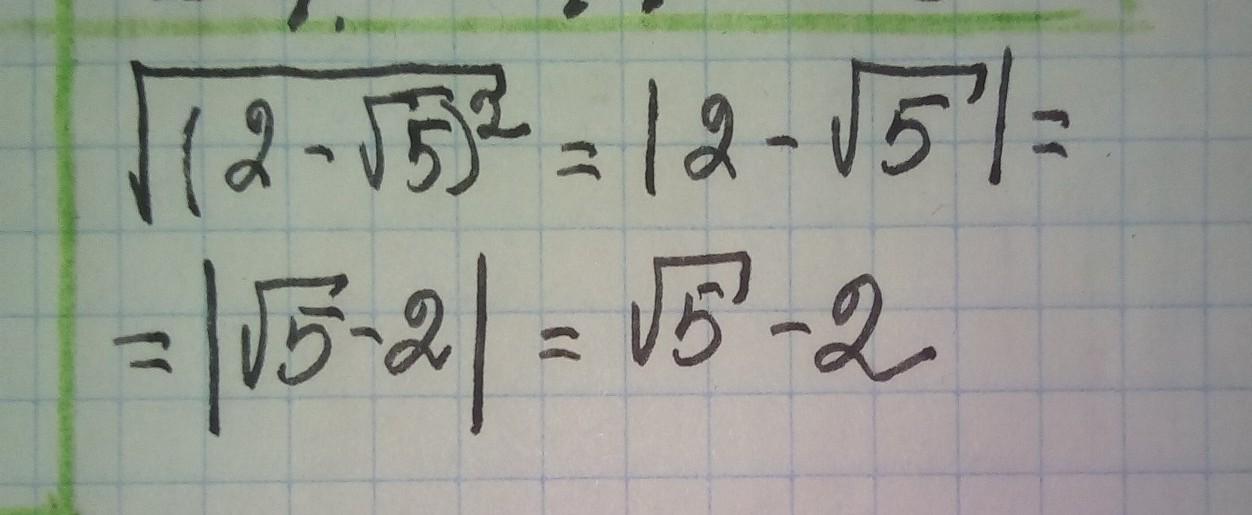 √((2-√5)²) = |2-√5| =
= |√5-2| = √5-2